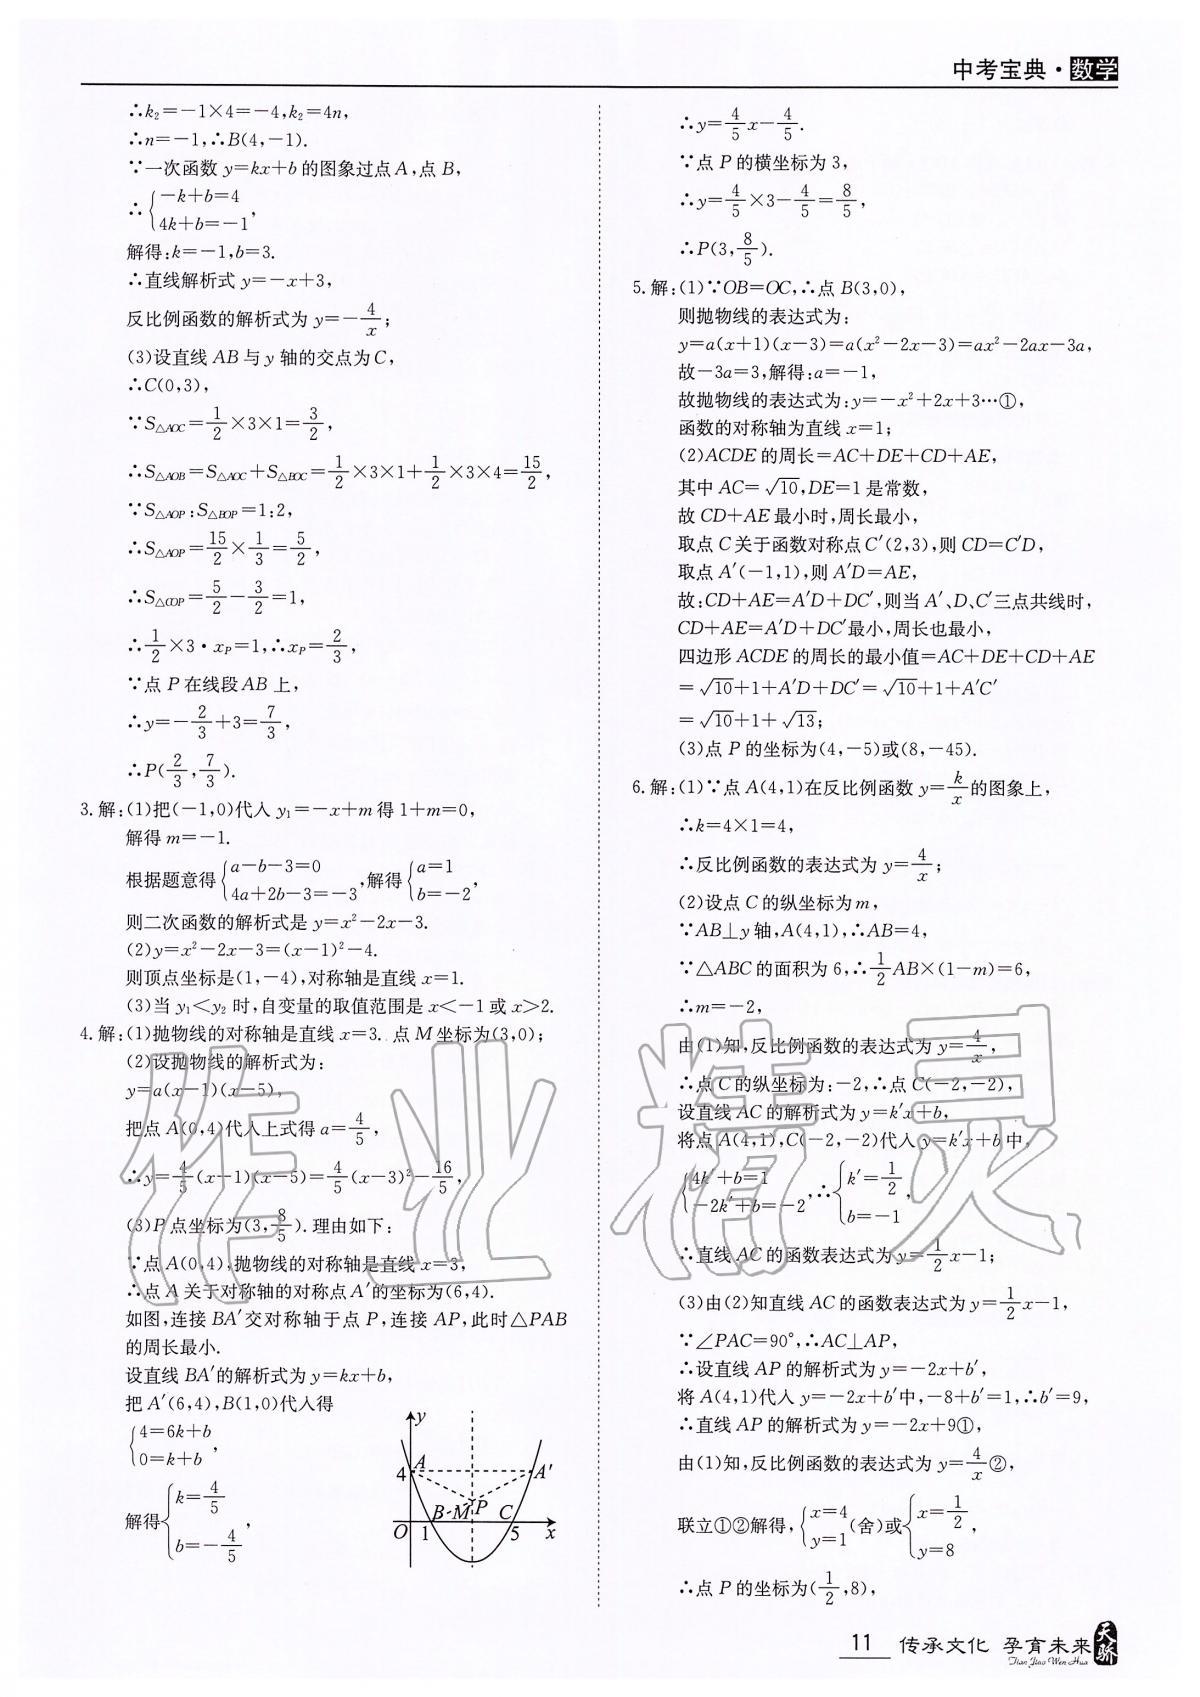 中考宝典·数学
∴k₂=-1×4=-4,k₂=4n,
∴n=-1,∴B(4,-1).
∵一次函数 y=kx+b 的图象过点A,点 B,
∴{-k+b=4
4k+b=-1,
解得:k=-1,b=3.
∴直线解析式 y=-x+3,
反比例函数的解析式为 y=-4/x;
(3)设直线 AB 与 y 轴的交点为C,
∴C(0,3),
∵S△AOC=1/2×3×1=3/2,
∴S△AOB=S△AOC+S△BOC=1/2×3×1+1/2×3×4=15/2,
∵S△AOP:S△BOP=1:2,
∴S△AOP=15/2×1/3=5/2,
∴S△COP=5/2-3/2=1,
∴1/2×3·xP=1,∴xP=2/3,
∵点 P 在线段AB 上,
∴y=-2/3+3=7/3,
∴P(2/3,7/3).
3.解:(1)把(-1,0)代入 y₁=-x+m 得 1+m=0,
解得 m=-1.
根据题意得{a-b-3=0
4a+2b-3=-3,解得{a=1
b=-2,
则二次函数的解析式是 y=x²-2x-3.
(2)y=x²-2x-3=(x-1)²-4.
则顶点坐标是(1,-4),对称轴是直线 x=1.
(3)当 y₁<y₂ 时,自变量的取值范围是 x<-1 或 x>2.
4.解:(1)抛物线的对称轴是直线 x=3. 点 M 坐标为(3,0);
(2)设抛物线的解析式为:
y=a(x-1)(x-5),
把点 A(0,4)代入上式得 a=4/5,
∴y=4/5(x-1)(x-5)=4/5(x-3)²-16/5,
(3)P 点坐标为(3,8/5).理由如下:
∵点 A(0,4),抛物线的对称轴是直线 x=3,
∴点 A 关于对称轴的对称点A′的坐标为(6,4).
如图,连接 BA′交对称轴于点 P,连接 AP,此时△PAB
的周长最小.
设直线 BA′的解析式为 y=kx+b,
把 A′(6,4),B(1,0)代入得
{4=6k+b
0=k+b,
解得{k=4/5
b=-4/5,
y
4
A
A′
B
M
P
C
O
1
5
x
∴y=4/5x-4/5.
∵点 P 的横坐标为 3,
∴y=4/5×3-4/5=8/5,
∴P(3,8/5).
5.解:(1)∵OB=OC,∴点 B(3,0),
则抛物线的表达式为:
y=a(x+1)(x-3)=a(x²-2x-3)=ax²-2ax-3a,
故-3a=3,解得:a=-1,
故抛物线的表达式为:y=-x²+2x+3…①,
函数的对称轴为直线 x=1;
(2)ACDE 的周长=AC+DE+CD+AE,
其中 AC=√10,DE=1 是常数,
故 CD+AE 最小时,周长最小,
取点 C 关于函数对称点 C′(2,3),则 CD=C′D,
取点 A′(-1,1),则 A′D=AE,
故:CD+AE=A′D+DC′,则当 A′、D、C′三点共线时,
CD+AE=A′D+DC′最小,周长也最小,
四边形 ACDE 的周长的最小值=AC+DE+CD+AE
=√10+1+A′D+DC′=√10+1+A′C′
=√10+1+√13;
(3)点 P 的坐标为(4,-5)或(8,-45).
6.解:(1)∵点 A(4,1)在反比例函数 y=k/x的图象上,
∴k=4×1=4,
∴反比例函数的表达式为 y=4/x;
(2)设点 C 的纵坐标为m,
∵AB⊥y 轴,A(4,1),∴AB=4,
∵△ABC 的面积为 6,∴1/2AB×(1-m)=6,
∴m=-2,
由(1)知,反比例函数的表达式为 y=4/x,
∴点 C 的纵坐标为:-2,∴点 C(-2,-2),
设直线 AC 的解析式为 y=k′x+b,
将点 A(4,1),C(-2,-2)代入 y=k′x+b 中,
{4k′+b=1
-2k′+b=-2,∴{k′=1/2
b=-1,
∴直线 AC 的函数表达式为 y=1/2x-1;
(3)由(2)知直线 AC 的函数表达式为 y=1/2x-1,
∵∠PAC=90°,∴AC⊥AP,
∴设直线 AP 的解析式为 y=-2x+b′,
将 A(4,1)代入 y=-2x+b′中,-8+b′=1,∴b′=9,
∴直线 AP 的解析式为 y=-2x+9①,
由(1)知,反比例函数的表达式为 y=4/x②,
联立①②解得,{x=4
y=1(舍)或{x=1/2
y=8,
∴点 P 的坐标为(1/2,8),
作业精灵
11 传承文化 孕育未来
Tian Jiao Wen Hua
天骄